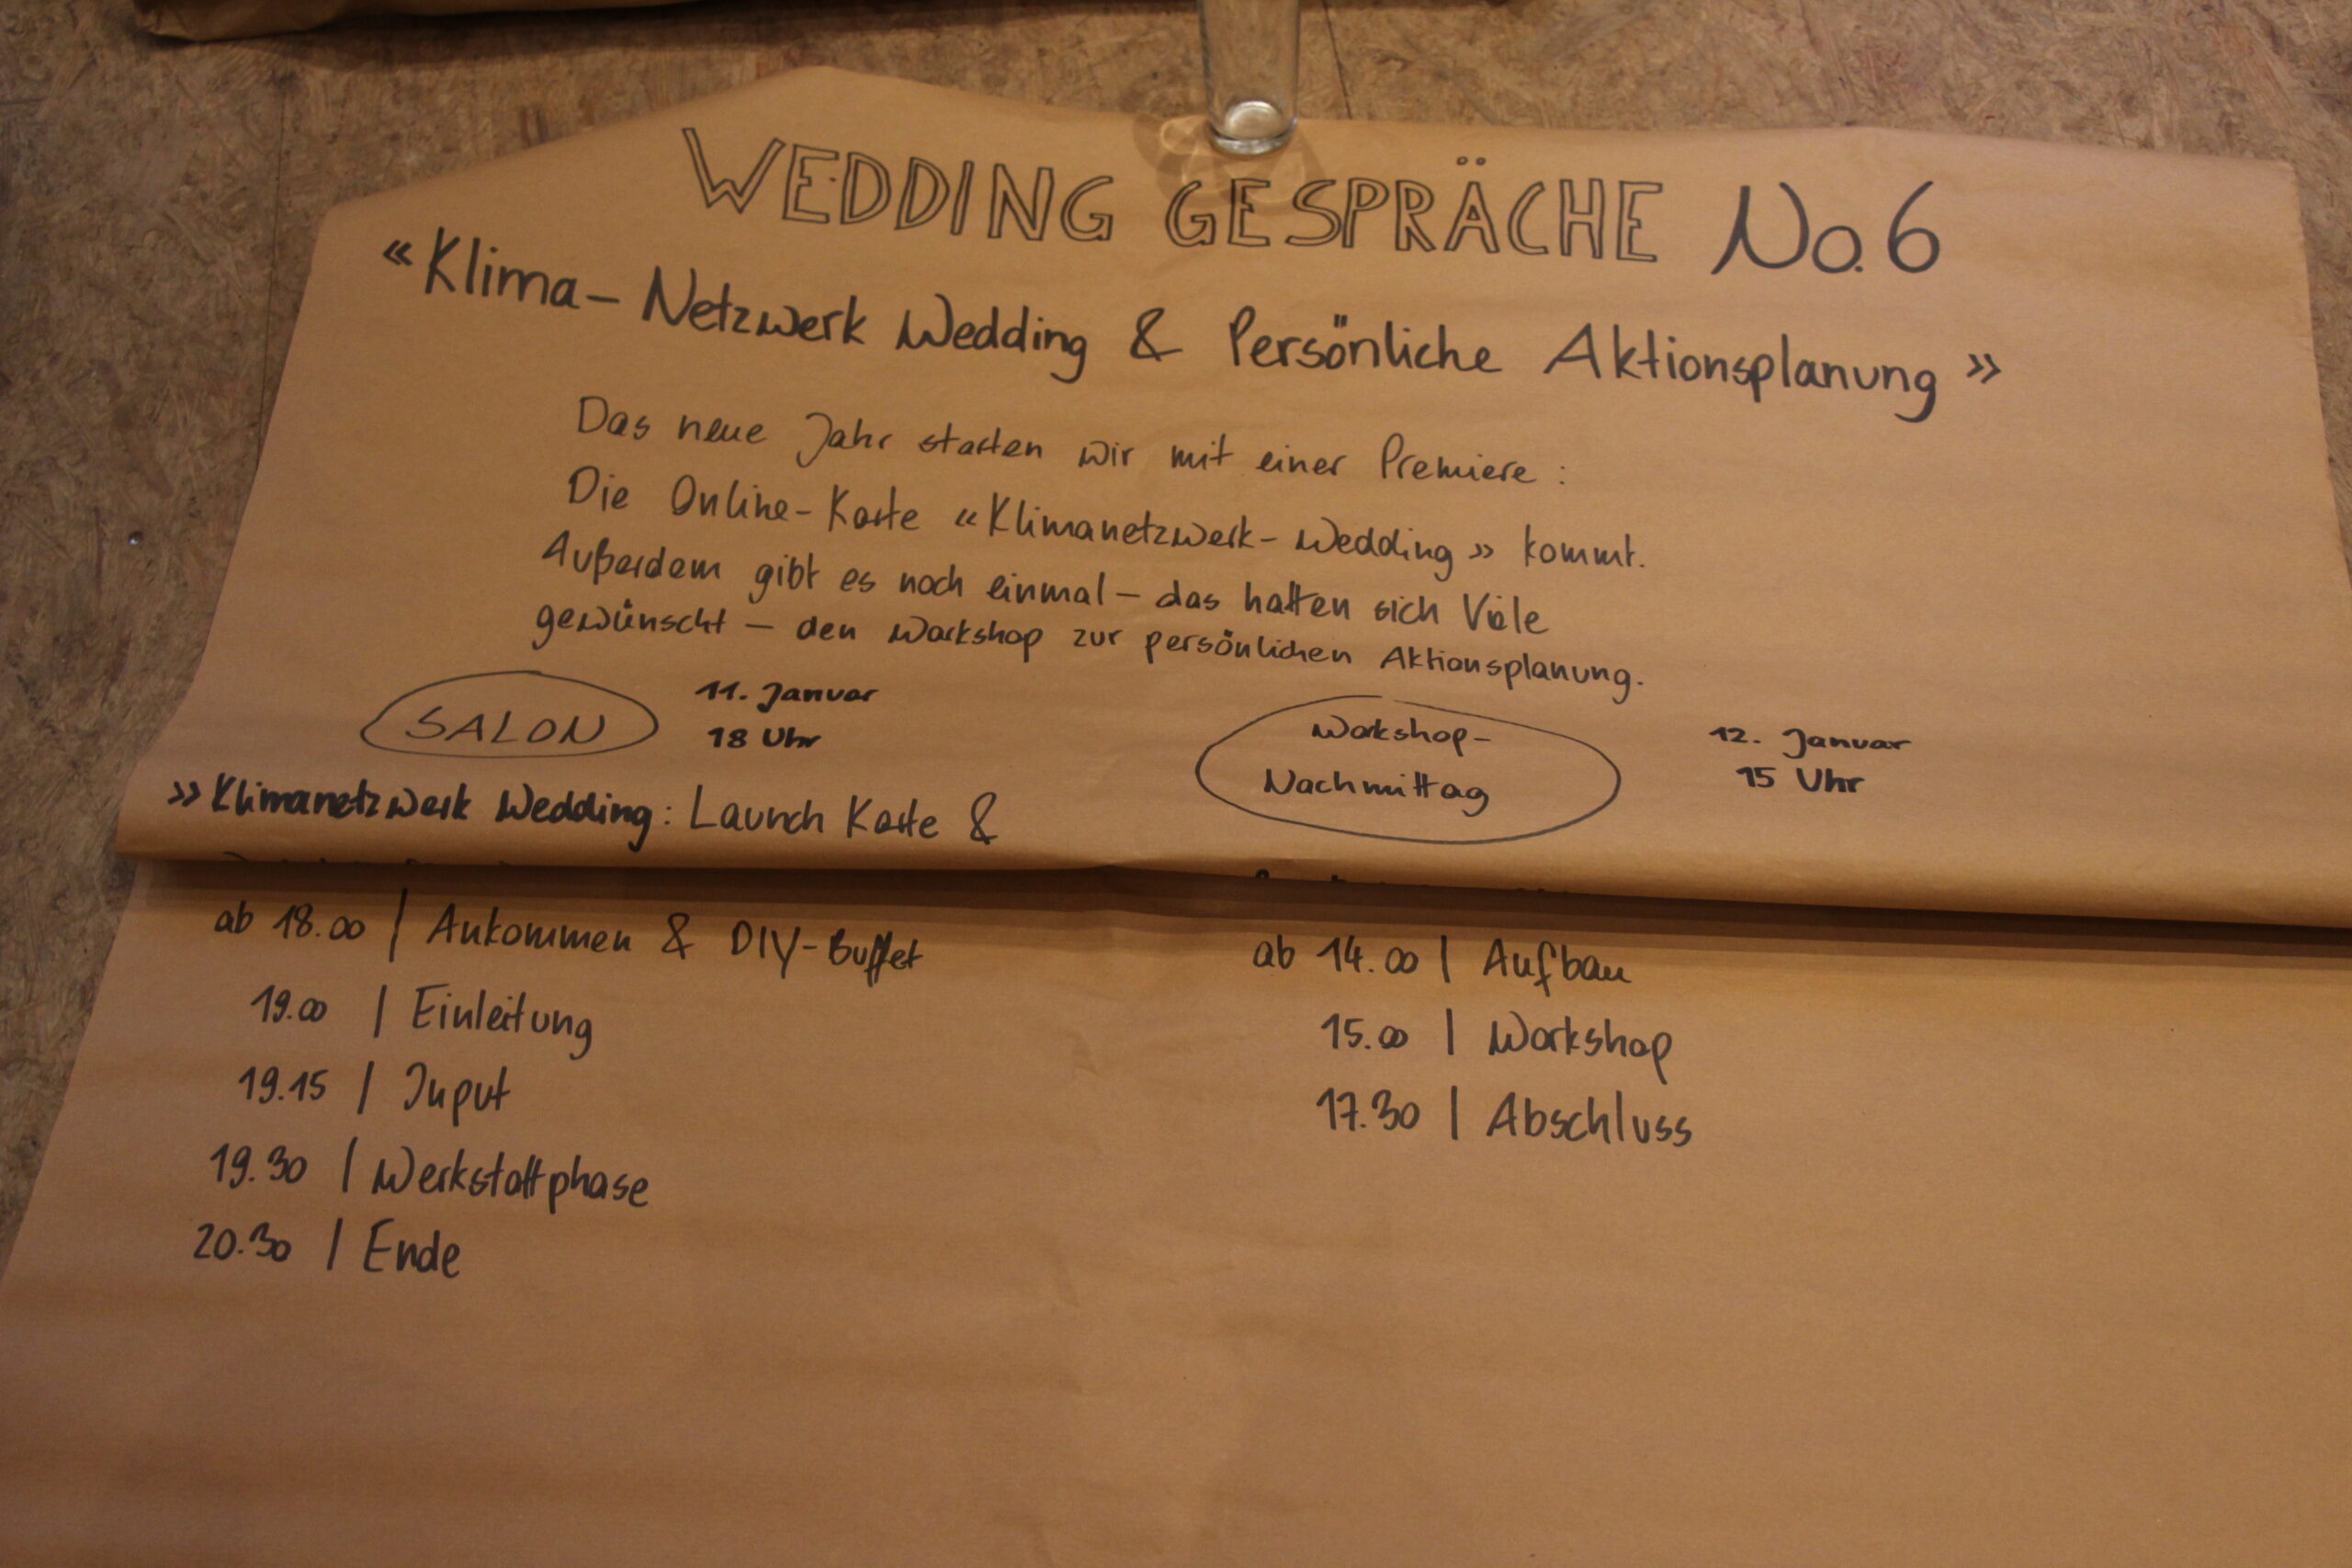 WEDDING GESPRÄCHE No. 6
«Klima-Netzwerk Wedding & Persönliche Aktionsplanung»
Das neue Jahr starten wir mit einer Premiere:
Die Online-Karte «Klimanetzwerk-Wedding» kommt.
Außerdem gibt es noch einmal – das hatten sich Viele
gewünscht – den Workshop zur persönlichen Aktionsplanung.
SALON
11. Januar
18 Uhr
»Klimanetzwerk Wedding: Launch Karte &
ab 18.00 | Ankommen & DIY-Buffet
19.00 | Einleitung
19.15 | Input
19.30 | Werkstattphase
20.30 | Ende
Workshop-
Nachmittag
12. Januar
15 Uhr
ab 14.00 | Aufbau
15.00 | Workshop
17.30 | Abschluss